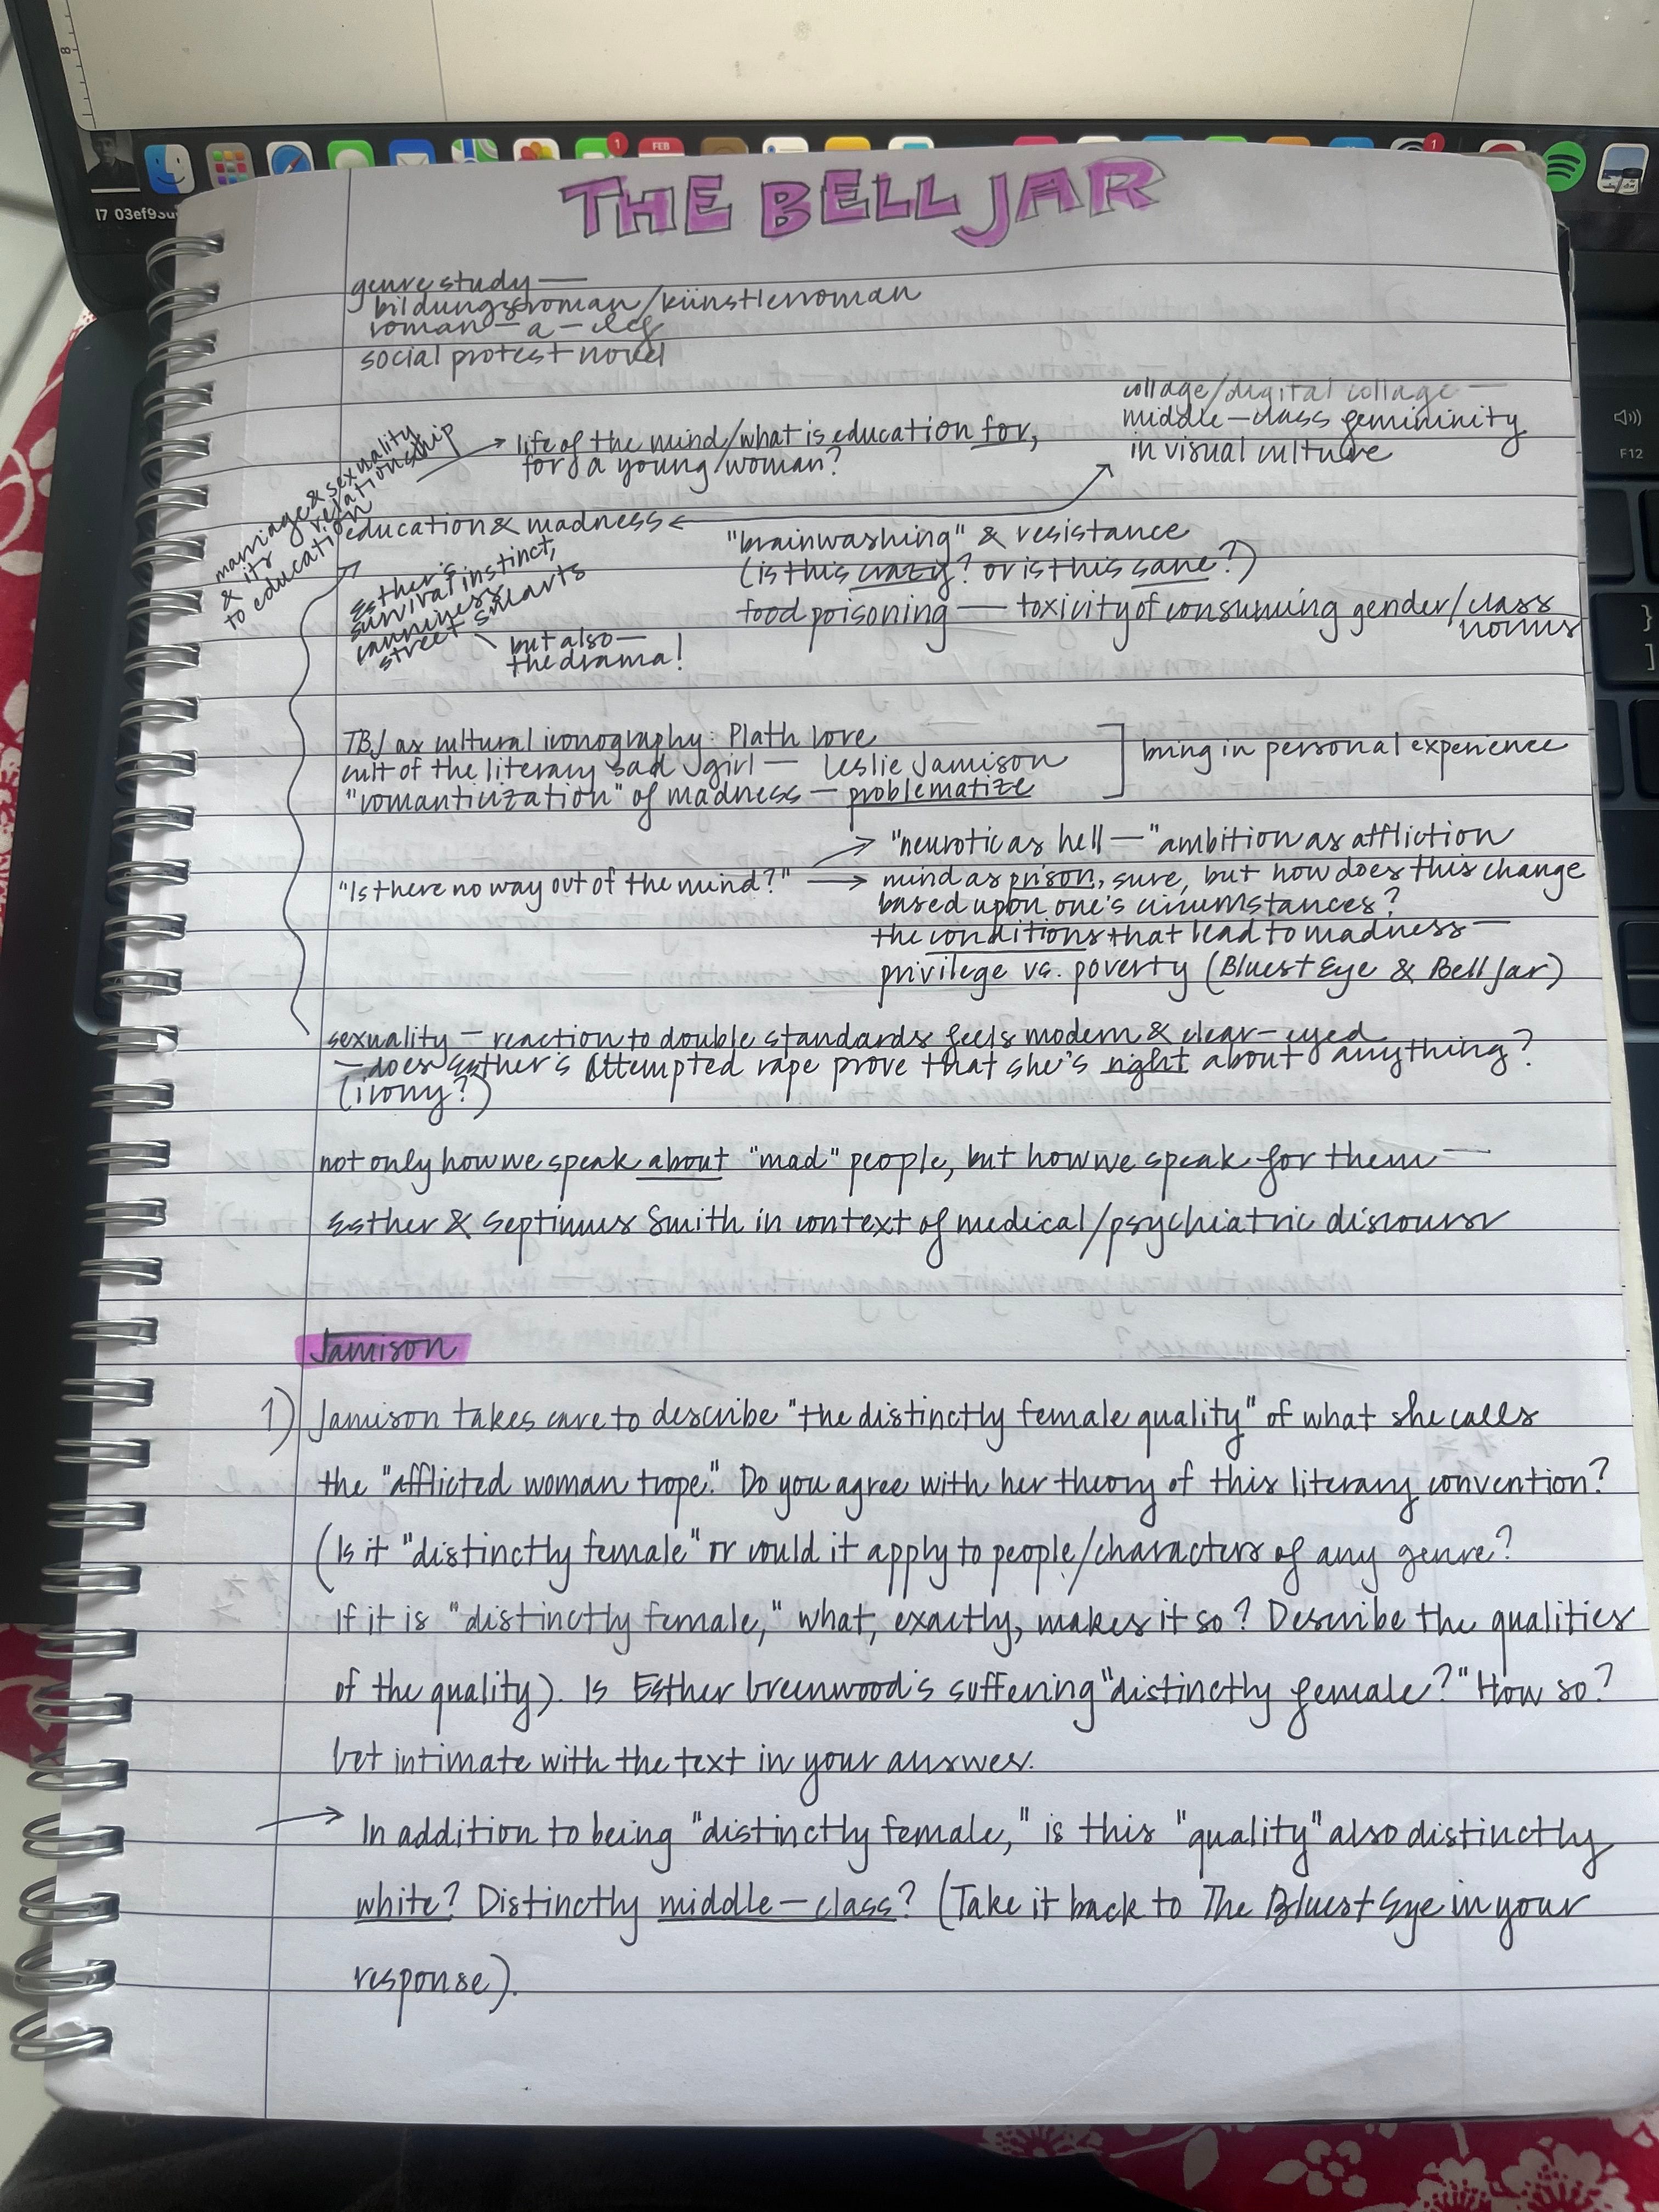 THE BELL JAR
genre study —
bildungsroman/künstlerroman
roman-a-clef
social protest novel
collage/digital collage —
middle-class femininity
in visual culture
marriage & sexuality
& its relationship
to education
→ life of the mind/what is education for,
for a young woman?
education & madness
"brainwashing" & resistance
(is this crazy? or is this sane?)
food poisoning — toxicity of consuming gender/class
norms
Esther's
survival instinct,
canniness
street smarts
but also —
the drama!
TBJ as cultural iconography: Plath lore
cult of the literary sad girl — Leslie Jamison
"romanticization" of madness — problematize
bring in personal experience
"Is there no way out of the mind?"
→ "neurotic as hell — "ambition as affliction
→ mind as prison, sure, but how does this change
based upon one's circumstances?
the conditions that lead to madness —
privilege vs. poverty (Bluest Eye & Bell Jar)
sexuality — reaction to double standards feels modern & clear-eyed
— does Esther's attempted rape prove that she's right about anything?
(irony?)
not only how we speak about "mad" people, but how we speak for them —
Esther & Septimus Smith in context of medical/psychiatric discourse
Jamison
1) Jamison takes care to describe "the distinctly female quality" of what she calls
the "afflicted woman trope." Do you agree with her theory of this literary convention?
(Is it "distinctly female" or could it apply to people/characters of any genre?
If it is "distinctly female," what, exactly, makes it so? Describe the qualities
of the quality). Is Esther Greenwood's suffering "distinctly female?" How so?
Get intimate with the text in your answer.
→ In addition to being "distinctly female," is this "quality" also distinctly
white? Distinctly middle-class? (Take it back to The Bluest Eye in your
response).
FEB
1
1
17 03ef93
F12
}
]
8